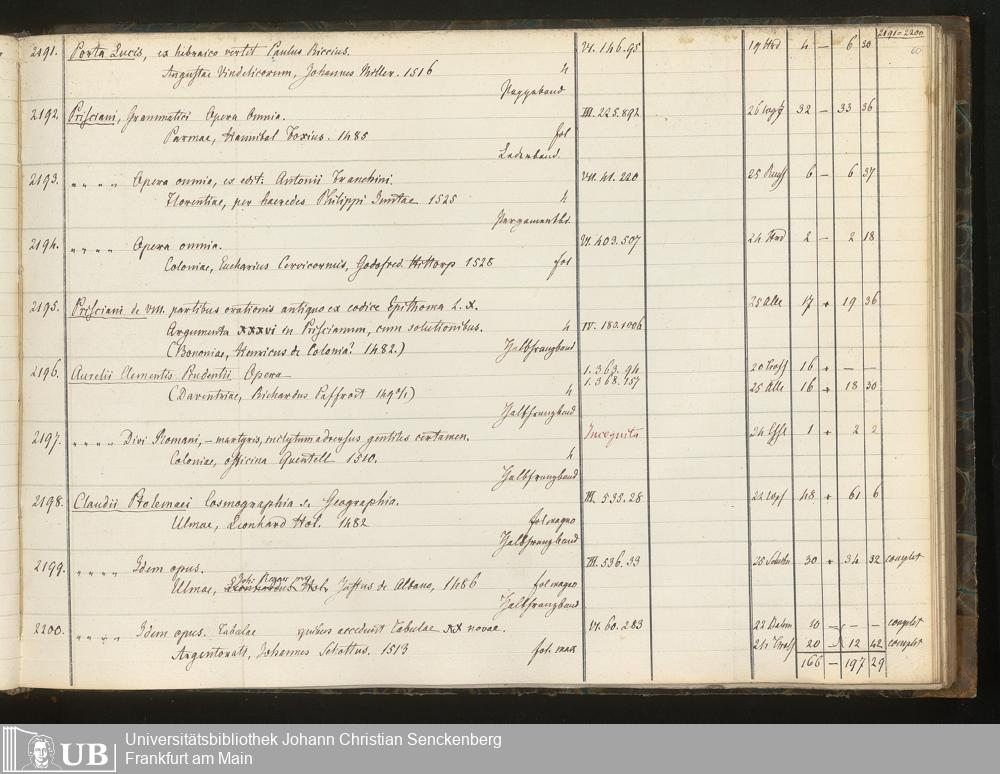 2191=2200
60
2191. Porta Lucis, ex hebraico vertit Paulus Riccius. VI. 146.95 4 — 6 30
Augustae Vindelicorum, Johannes Miller. 1516 4
Pappband
2192. Prisciani, Grammatici Opera Omnia. III. 225.892 32 — 33 36
Parmae, Hannibal Foxius. 1485 fol
Lederband.
2193. " " " " Opera omnia, ex edit: Antonii Franchini. VII. 41. 220 6 — 6 37
Florentiae, per haeredes Philippi Juntae 1525 4
Pergamentbd.
2194. " " " " Opera omnia. VI. 403.507 2 — 2 18
Coloniae, Eucharius Cervicornus, Godofred. Hittorp 1528 fol
2195. Prisciani de VIII. partibus orationis antiquo ex codice Epithoma L. X. 25 Alle 17 + 19 36
Argumenta XXXVI in Priscianum, cum solutionibus. 4 IV. 180.1006
(Bononiae, Henricus de Colonia? 1482.) Halbfranzband
2196. Aurelii Clementis Prudentii Opera 1.363.94 16 + — —
(Daventriae, Richardus Paffroet 149%) 4 1.368.157 25 Alle 16 + 18 30
Halbfranzband
2197. " " " " Divi Romani, — martyris, inclytum adversus gentiles certamen. Incognita 1 + 2 2
Coloniae, officina Quentell 1510. 4
Halbfranzband
2198. Claudii Ptolemaei Cosmographia s. Geographia. III. 535.28 48 + 61 6
Ulmae, Leonhard Hol. 1482 fol magno
Halbfranzband
2199. " " " " Idem opus. III. 536.33 30 + 34 32 complet
Ulmae, Joh: Reger pro Justus de Albano, 1486 fol magno
Halbfranzband
2200. " " " " Idem opus. Tabulae quibus accedunt Tabulae XX novae. VI. 60. 283 10 — — complet
Argentorati, Johannes Schottus. 1513 fol. max 20 12 42 complet
166 — 197 29
Universitätsbibliothek Johann Christian Senckenberg
Frankfurt am Main
UB